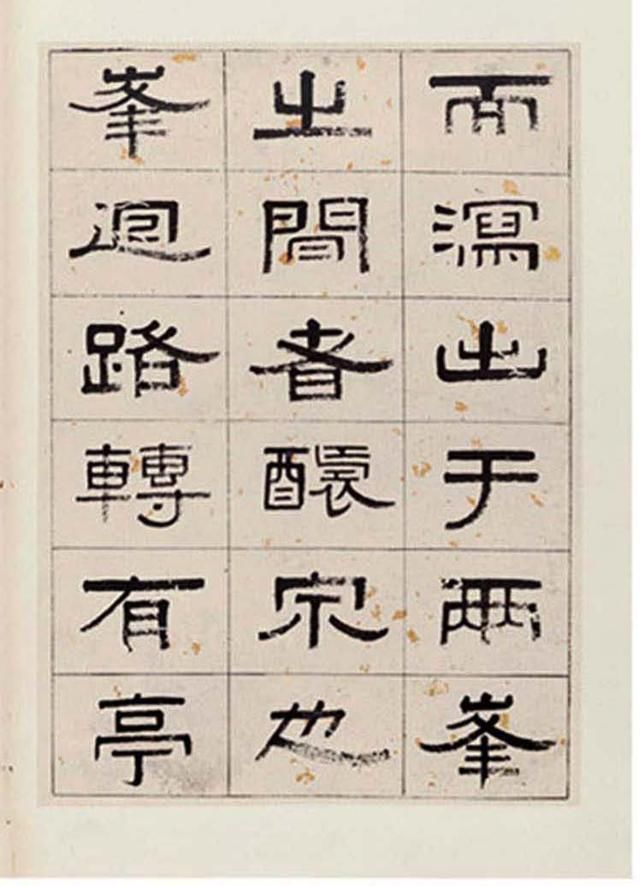 而瀉出于兩峯
之間者釀泉也
峯迴路轉有亭